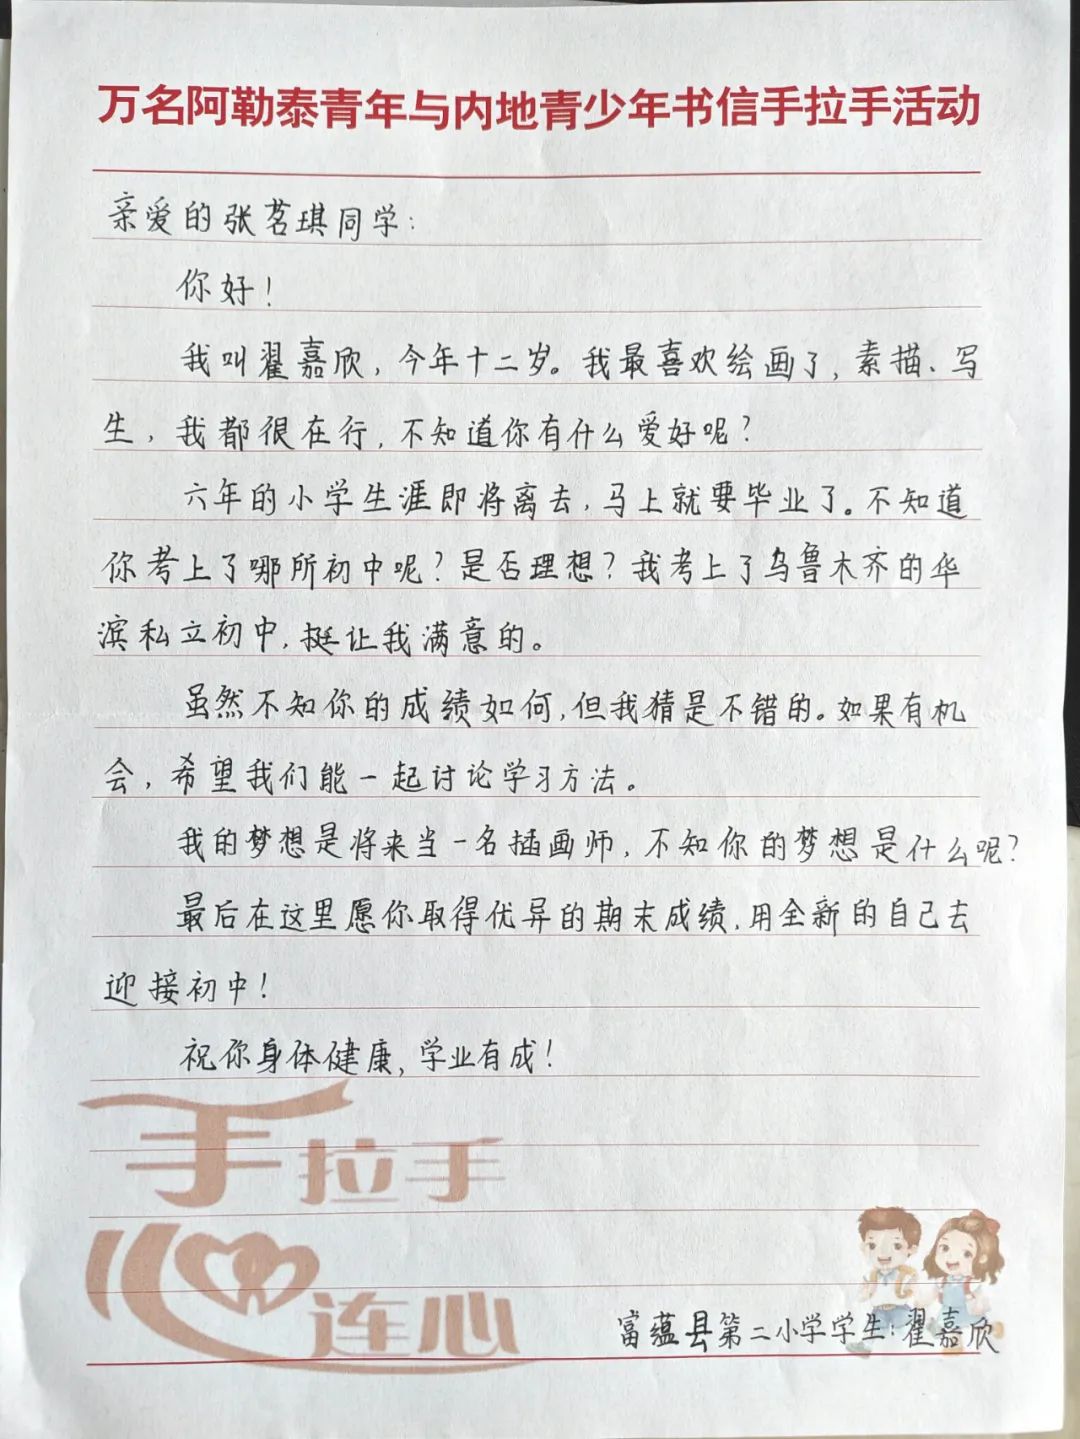 万名阿勒泰青年与内地青少年书信手拉手活动
亲爱的张茗琪同学：
你好！
我叫翟嘉欣，今年十二岁。我最喜欢绘画了，素描、写
生，我都很在行，不知道你有什么爱好呢？
六年的小学生涯即将离去，马上就要毕业了。不知道
你考上了哪所初中呢？是否理想？我考上了乌鲁木齐的华
滨私立初中，挺让我满意的。
虽然不知你的成绩如何，但我猜是不错的。如果有机
会，希望我们能一起讨论学习方法。
我的梦想是将来当一名插画师，不知你的梦想是什么呢？
最后在这里愿你取得优异的期末成绩，用全新的自己去
迎接初中！
祝你身体健康，学业有成！
手拉手
心连心
富蕴县第二小学学生：翟嘉欣